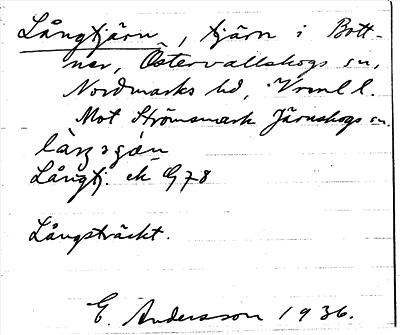 Långtjärn, tjärn i Bott-
ner, Östervallskogs sn,
Nordmarks hd, Vrml l.
Mot Strömsmark Järnskogs sn.
Långtj. ek G 78
Långsträckt.
E. Andersson 1936.